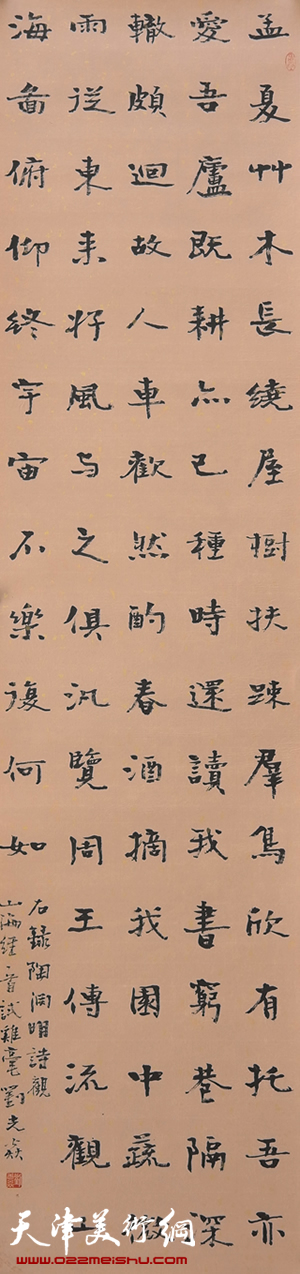 孟夏艸木長繞屋樹扶踈羣鳥欣有托吾亦
愛吾廬既耕亦已種時還讀我書窮巷隔深
轍頗迴故人車歡然酌春酒摘我園中蔬微
雨從東来好風与之俱汎覽周王傳流觀山
海啚俯仰終宇宙不樂復何如
右録陶渊明詩觀
山海經一首試雞毫劉光
天津美術網
www.022meishu.com